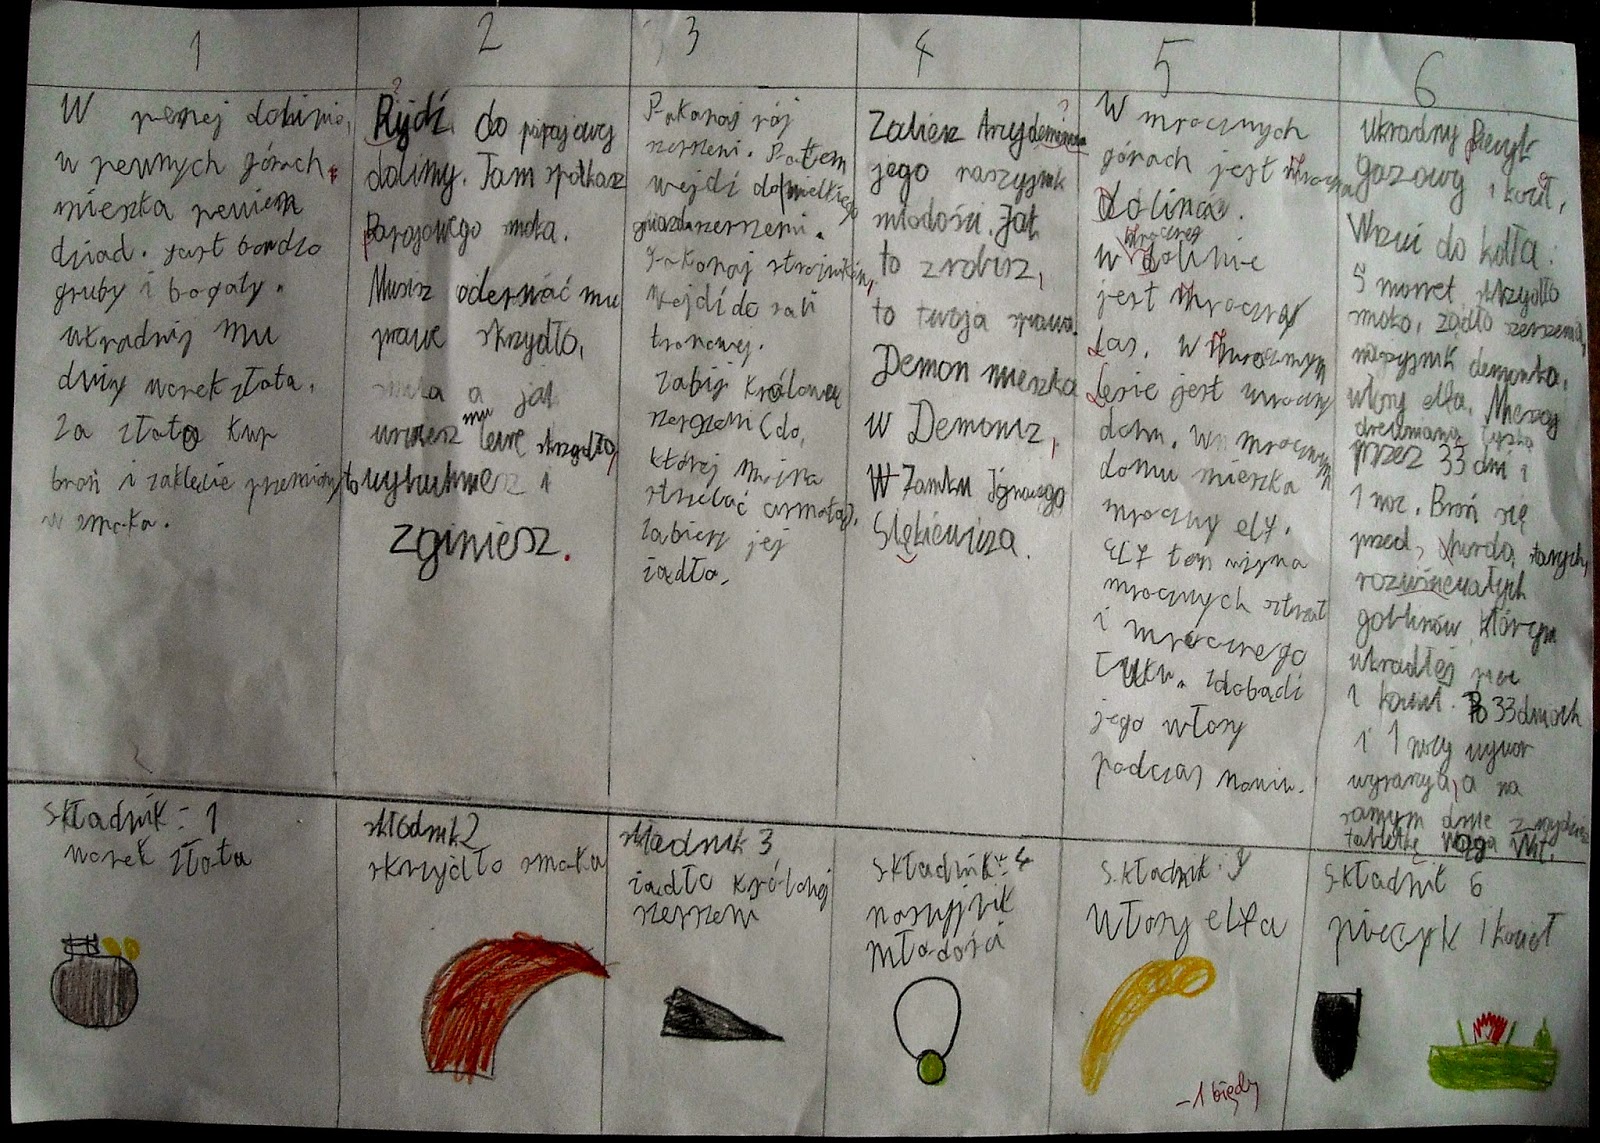 1
W pewnej dolinie,
w pewnych górach
mieszka pewien
dziad. Jest bardzo
gruby i bogaty.
ukradnij mu
duży worek złota.
Za złoto kup
broń i zaklęcie przemiany
w smoka.
2
?
do
doliny. Tam spotkasz
smoka.
Musisz oderwać mu
prawe skrzydło,
a jak
urwiesz mu lewe skrzydło,
to wybuchniesz i
zginiesz.
3
Pokonaj rój
szerszeni. Potem
wejdź do wielkiego
gniazda szerszeni.
Pokonaj strażników,
Wejdź do sali
tronowej.
Zabij Królową
szerszeni (do
której można
strzelać armatą).
Zabierz jej
żądło.
4
?
Zabierz
jego naszyjnik
młodości. Jak
to zrobisz,
to twoja sprawa.
Demon mieszka
w
W Zamku
5
W mrocznych
górach jest mroczna
dolina.
w mrocznej dolinie
jest mroczny
las. W mrocznym
lesie jest mroczny
dom. W mrocznym
domu mieszka
mroczny elf.
Elf ten używa
mrocznych strzał
i mrocznego
łuku. Zdobądź
jego włosy
podczas
6
ukradnij
gazowy i kocioł,
Wrzuć do kotła:
5 monet, skrzydło
smoka, żądło szerszenia,
naszyjnik demonka,
włosy elfa. Mieszaj
drewnianą łyżką
przez 33 dni i
1 noc. Broń się
przed
goblinów, którym
ukradłeś piec
i kocioł. Po 33 dniach
i 1 nocy wywar
wyparuje, a na
samym dnie znajdziesz
tabletkę
składnik: 1
worek złota
składnik 2
skrzydło smoka
składnik 3
żądło królowej
szerszeni
składnik: 4
naszyjnik
młodości
składnik:
włosy elfa
składnik 6
piecyk i kocioł
-1 błędy